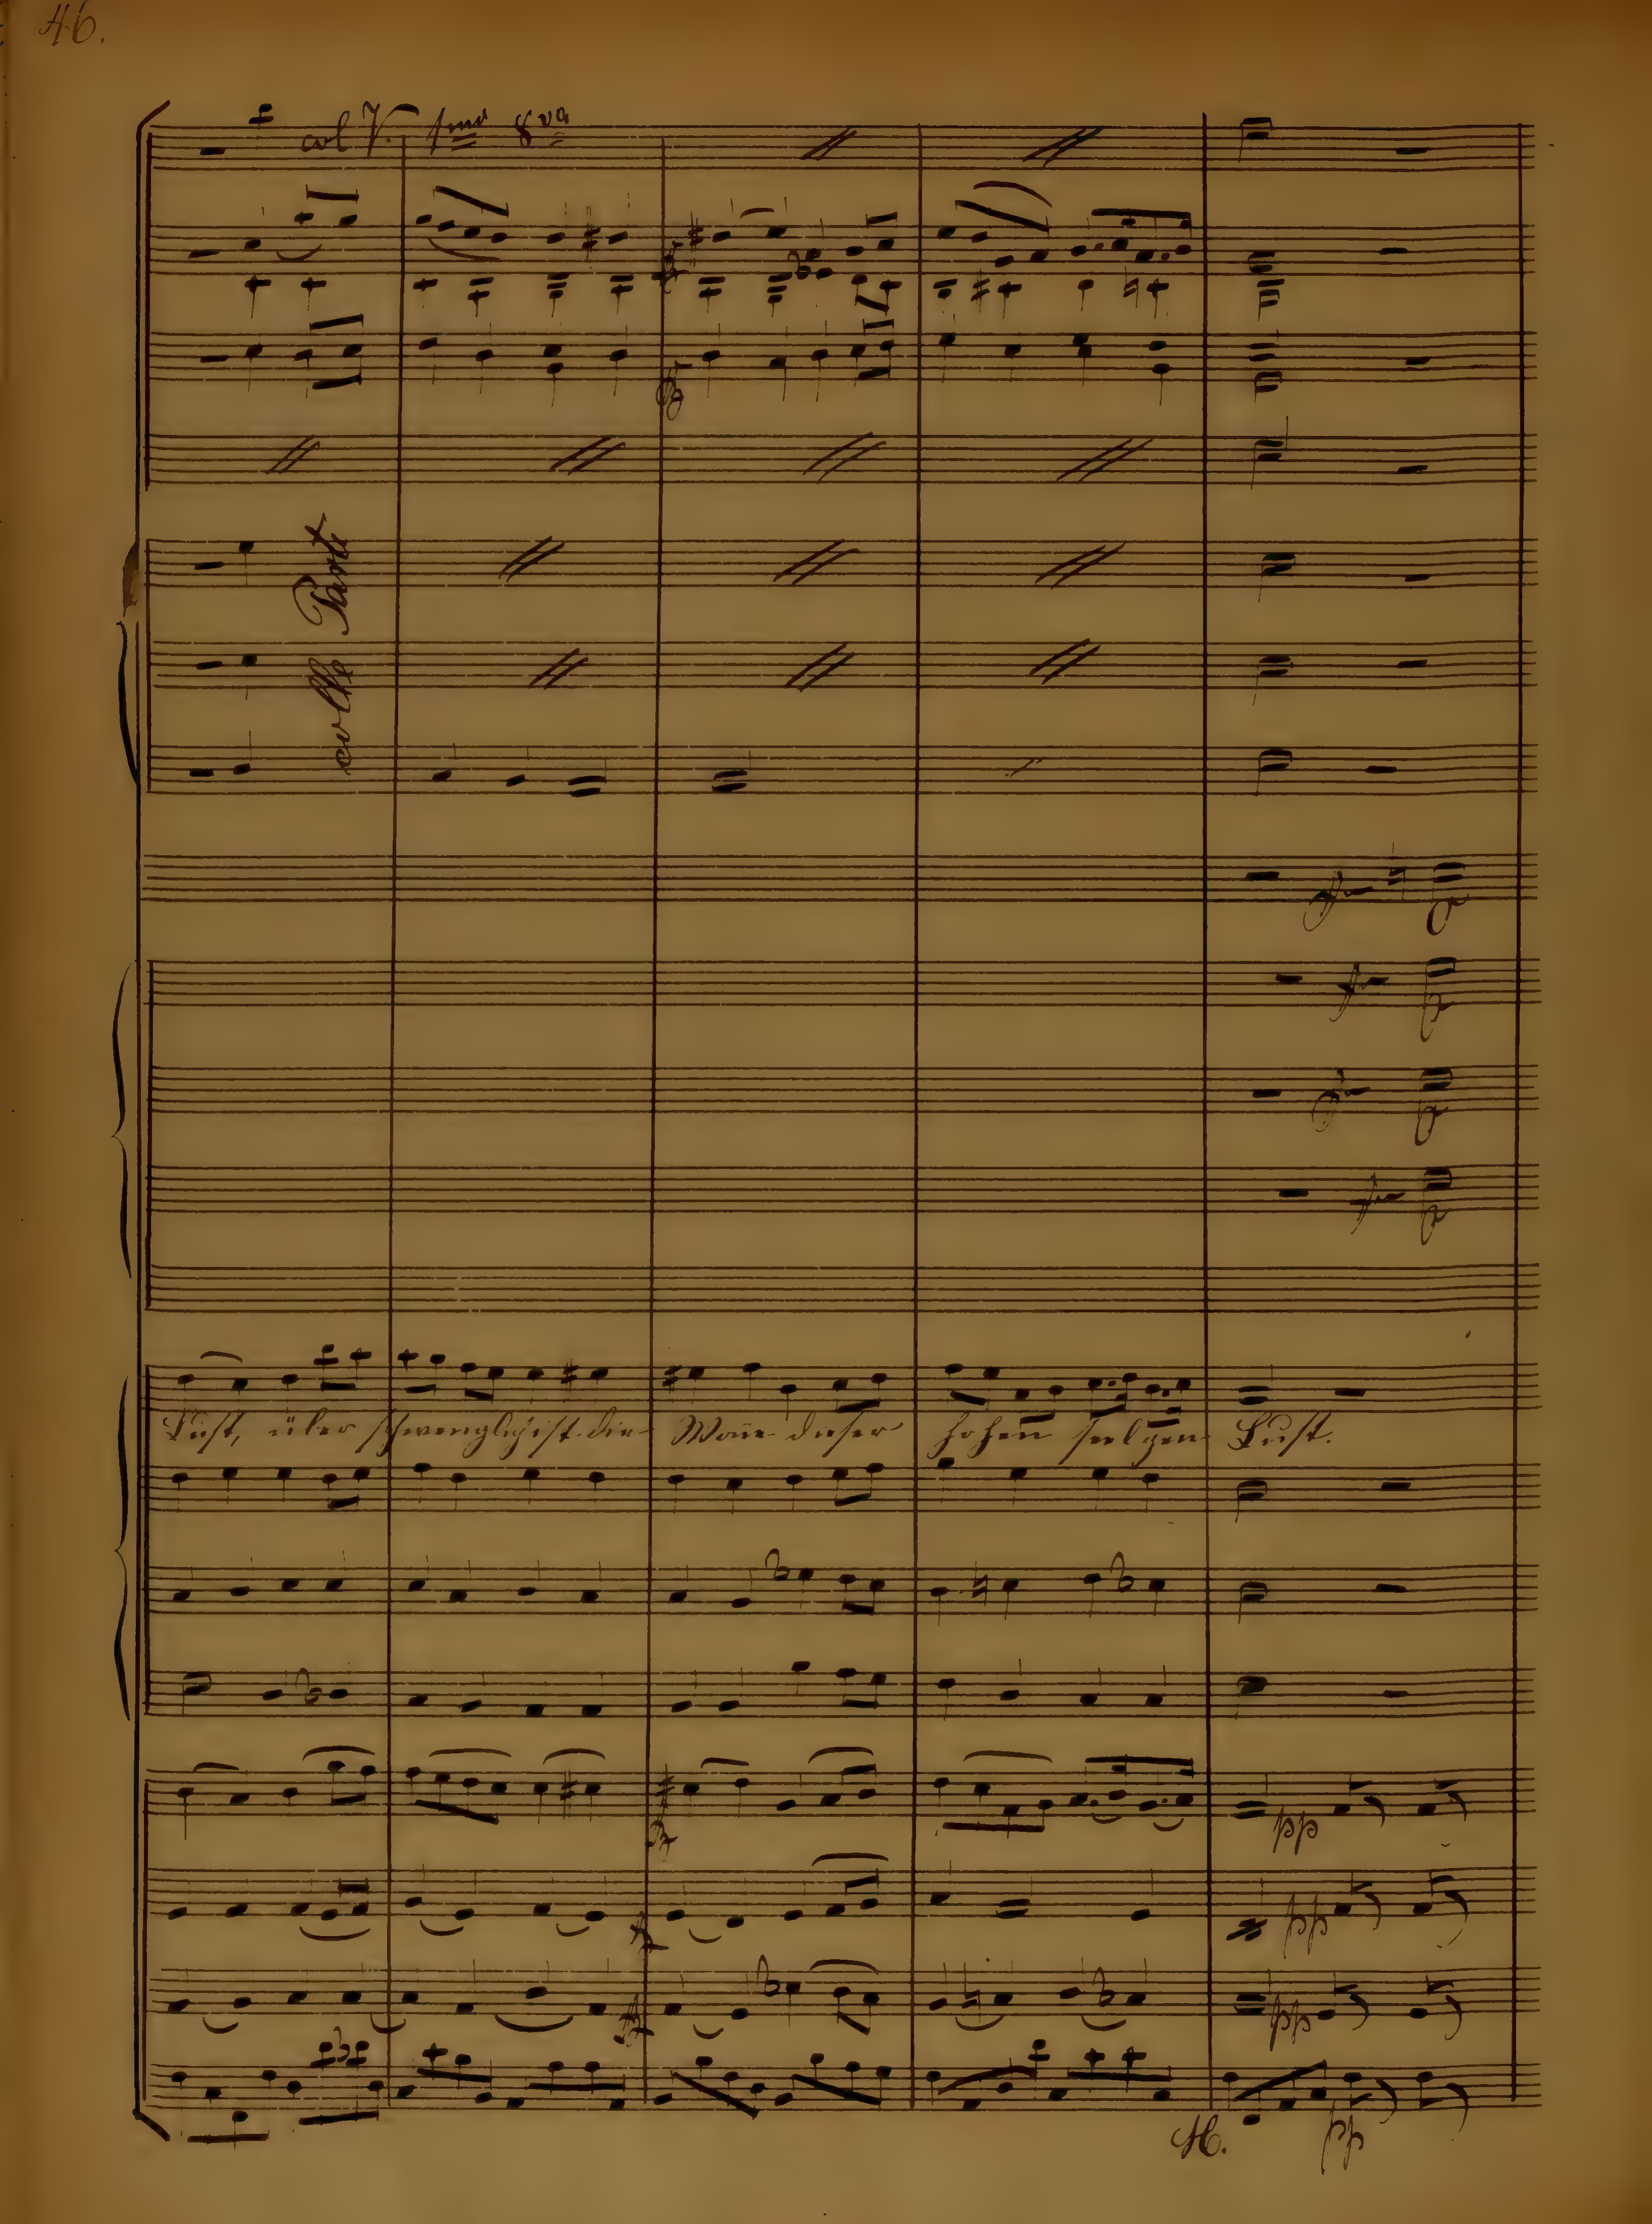 46.
col V. 1mo 8va
colle Parti
Lust, über schwenglich ist die Wone dieser hohen seelgen Lust.
pp
pp
pp
H.
pp